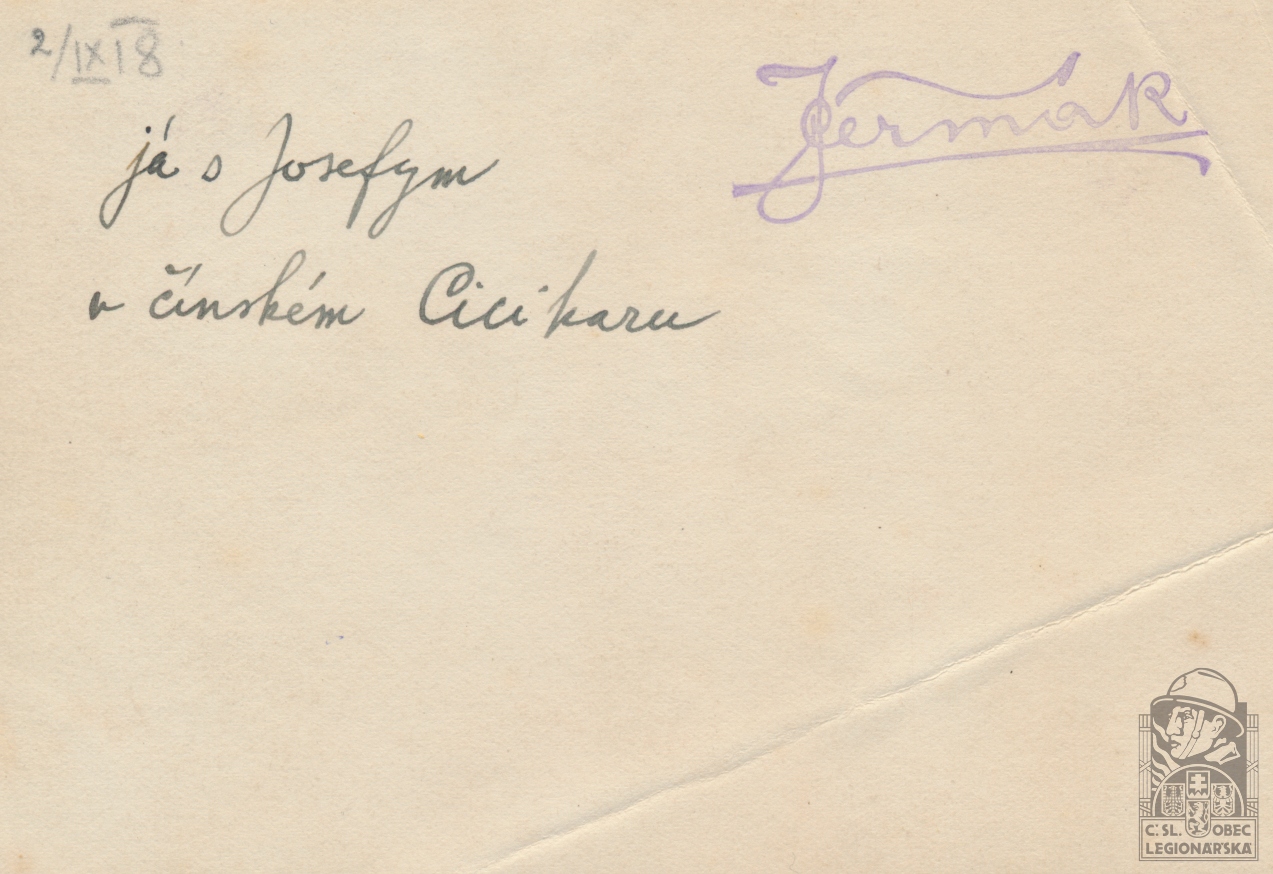 2/IX 18
Jermák
já s Josefym
v čínském Cicikaru
Č.SL. OBEC
LEGIONÁŘSKÁ